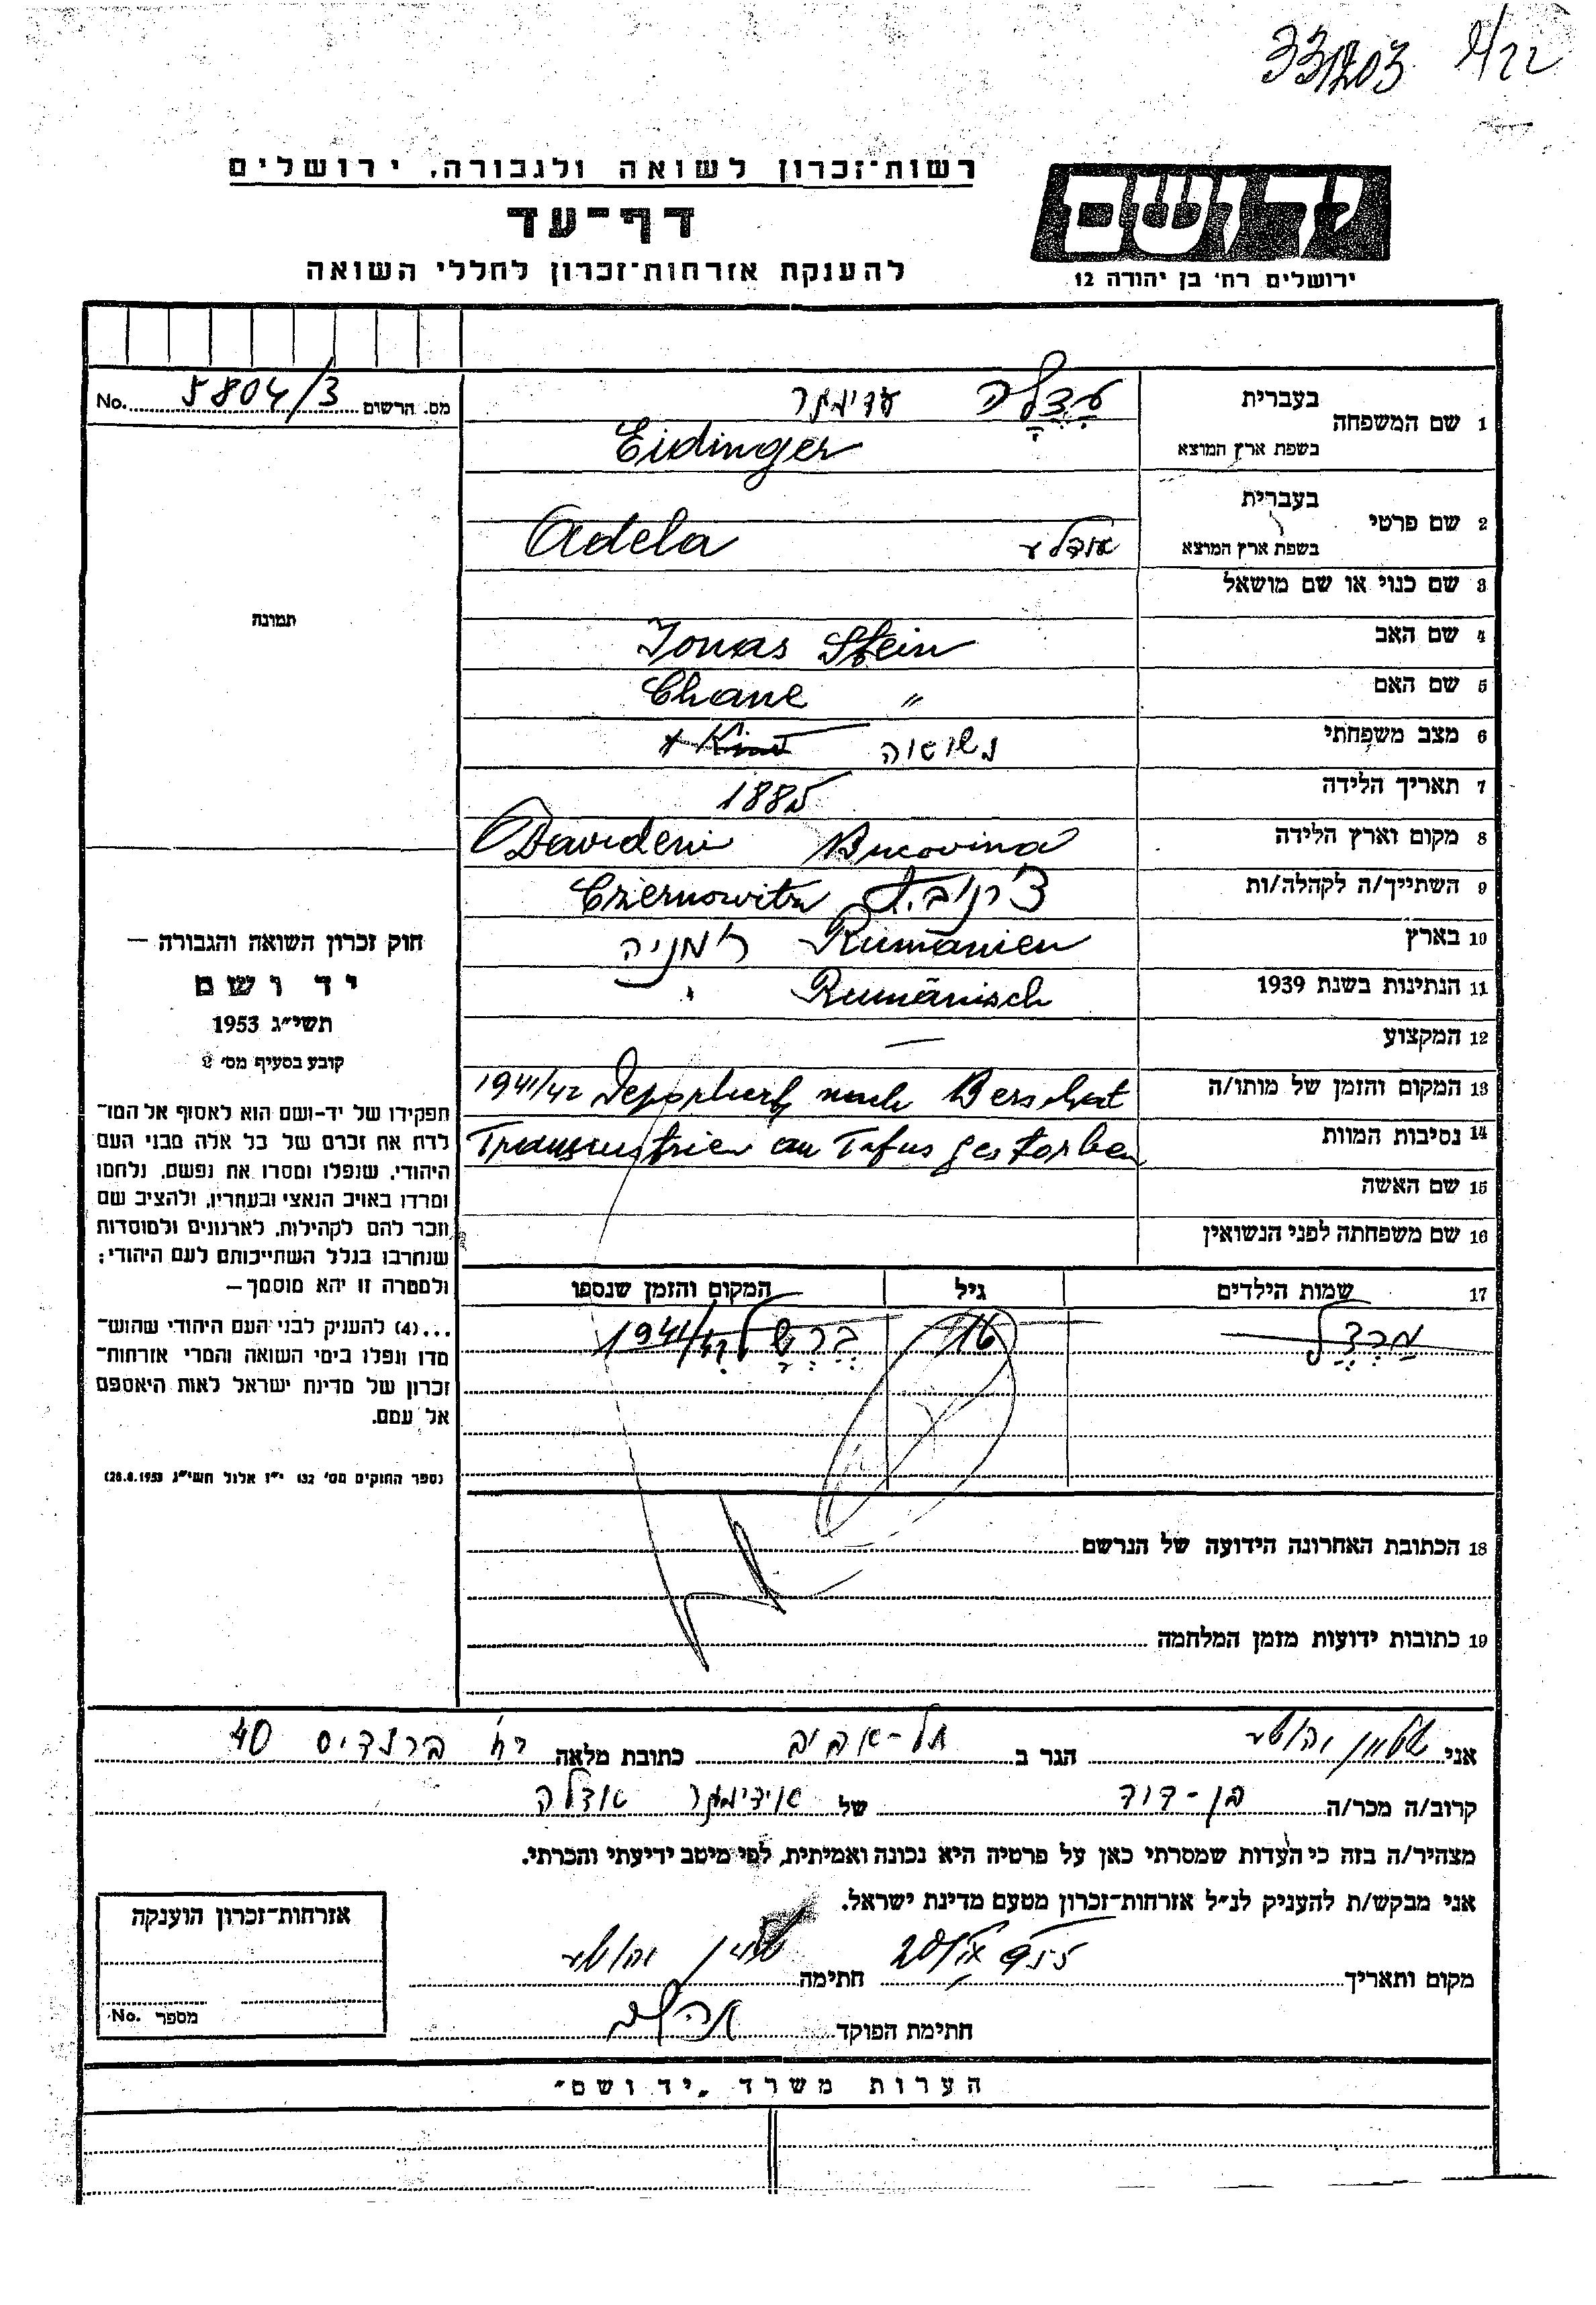 331203 2/22
רשות־זכרון לשואה ולגבורה, ירושלים
דף־עד
להענקת אזרחות־זכרון לחללי השואה
יד ושם
ירושלים רח' בן יהודה 12
מס. הרשום 5804/3 No.
1 שם המשפחה בעברית
בשפת ארץ המוצא Eidinger
2 שם פרטי בעברית
בשפת ארץ המוצא Adela
3 שם כנוי או שם מושאל
4 שם האב Jonas Stein
5 שם האם Chane "
6 מצב משפחתי נשואה
7 תאריך הלידה 1885
8 מקום וארץ הלידה Davideni Bucovina
9 השתייך/ה לקהלה/ות Czernowitz
10 בארץ Rumänien רומניה
11 הנתינות בשנת 1939 Rumänisch
12 המקצוע —
13 המקום והזמן של מותו/ה 1941/42 Deportiert nach Berschat
14 נסיבות המוות Transnistrien an Tyfus gestorben
15 שם האשה
16 שם משפחתה לפני הנשואין
17 שמות הילדים גיל המקום והזמן שנספו
16 1941/42
18 הכתובת האחרונה הידועה של הנרשם
19 כתובות ידועות מזמן המלחמה
תמונה
חוק זכרון השואה והגבורה —
יד ושם
תשי"ג 1953
קובע בסעיף מס' 2
תפקידו של יד-ושם הוא לאסוף אל המו־
לדת את זכרם של כל אלה מבני העם
היהודי, שנפלו ומסרו את נפשם, נלחמו
ומרדו באויב הנאצי ובעוזריו, ולהציב שם
וזכר להם לקהילות, לארגונים ולמוסדות
שנחרבו בגלל השתייכותם לעם היהודי;
ולמטרה זו יהא מוסמך —
...(4) להעניק לבני העם היהודי שהוש־
מדו ונפלו בימי השואה והמרי אזרחות־
זכרון של מדינת ישראל לאות היאספם
אל עמם.
(ספר החוקים מס' 132 י"ז אלול תשי"ג 28.8.1953)
אני שטיין הגר ב תל-אביב כתובת מלאה רח' ברנדיס 40
קרוב/ה מכר/ה בן-דוד של אידינגר אדלה
מצהיר/ה בזה כי העדות שמסרתי כאן על פרטיה היא נכונה ואמיתית, לפי מיטב ידיעתי והכרתי.
אני מבקש/ת להעניק לנ"ל אזרחות־זכרון מטעם מדינת ישראל.
מקום ותאריך חתימה
חתימת הפוקד
אזרחות־זכרון הוענקה
מספר No.
הערות משרד „יד ושם"